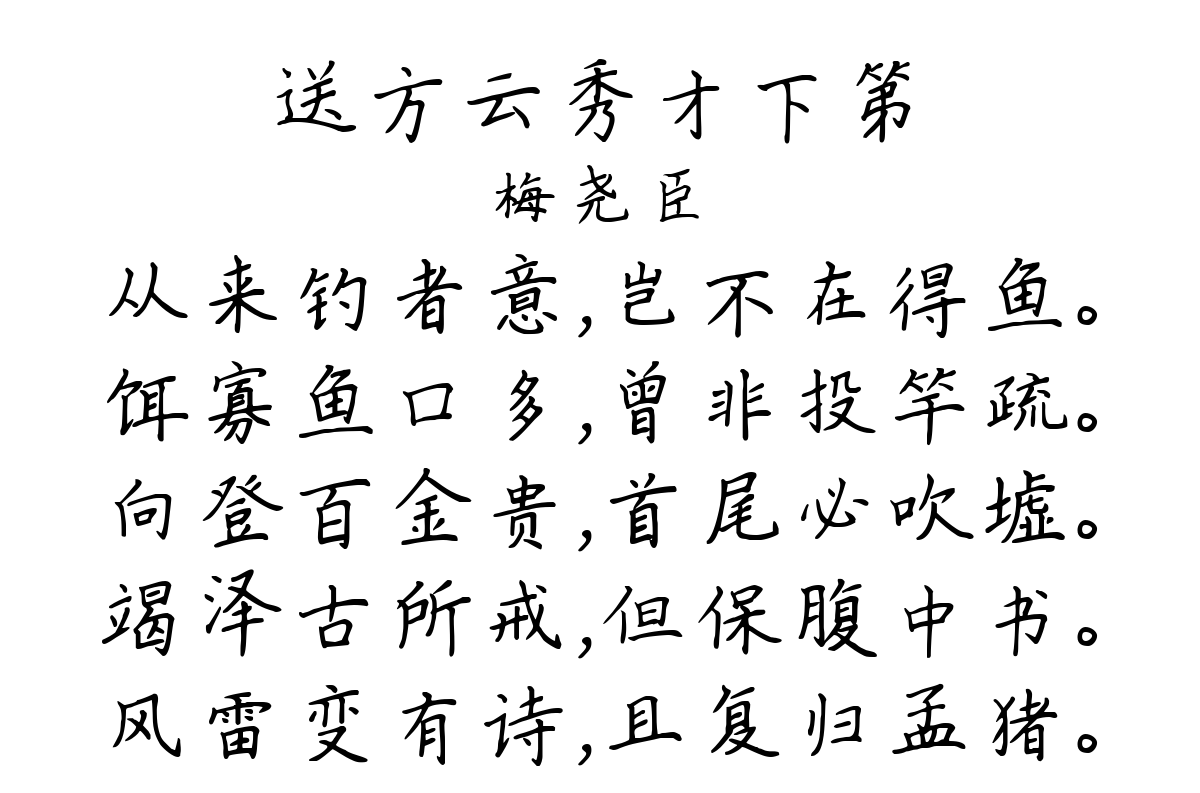 送方云秀才下第
梅尧臣
从来钓者意,岂不在得鱼。
饵寡鱼口多,曾非投竿疏。
向登百金贵,首尾必吹墟。
竭泽古所戒,但保腹中书。
风雷变有诗,且复归孟猪。